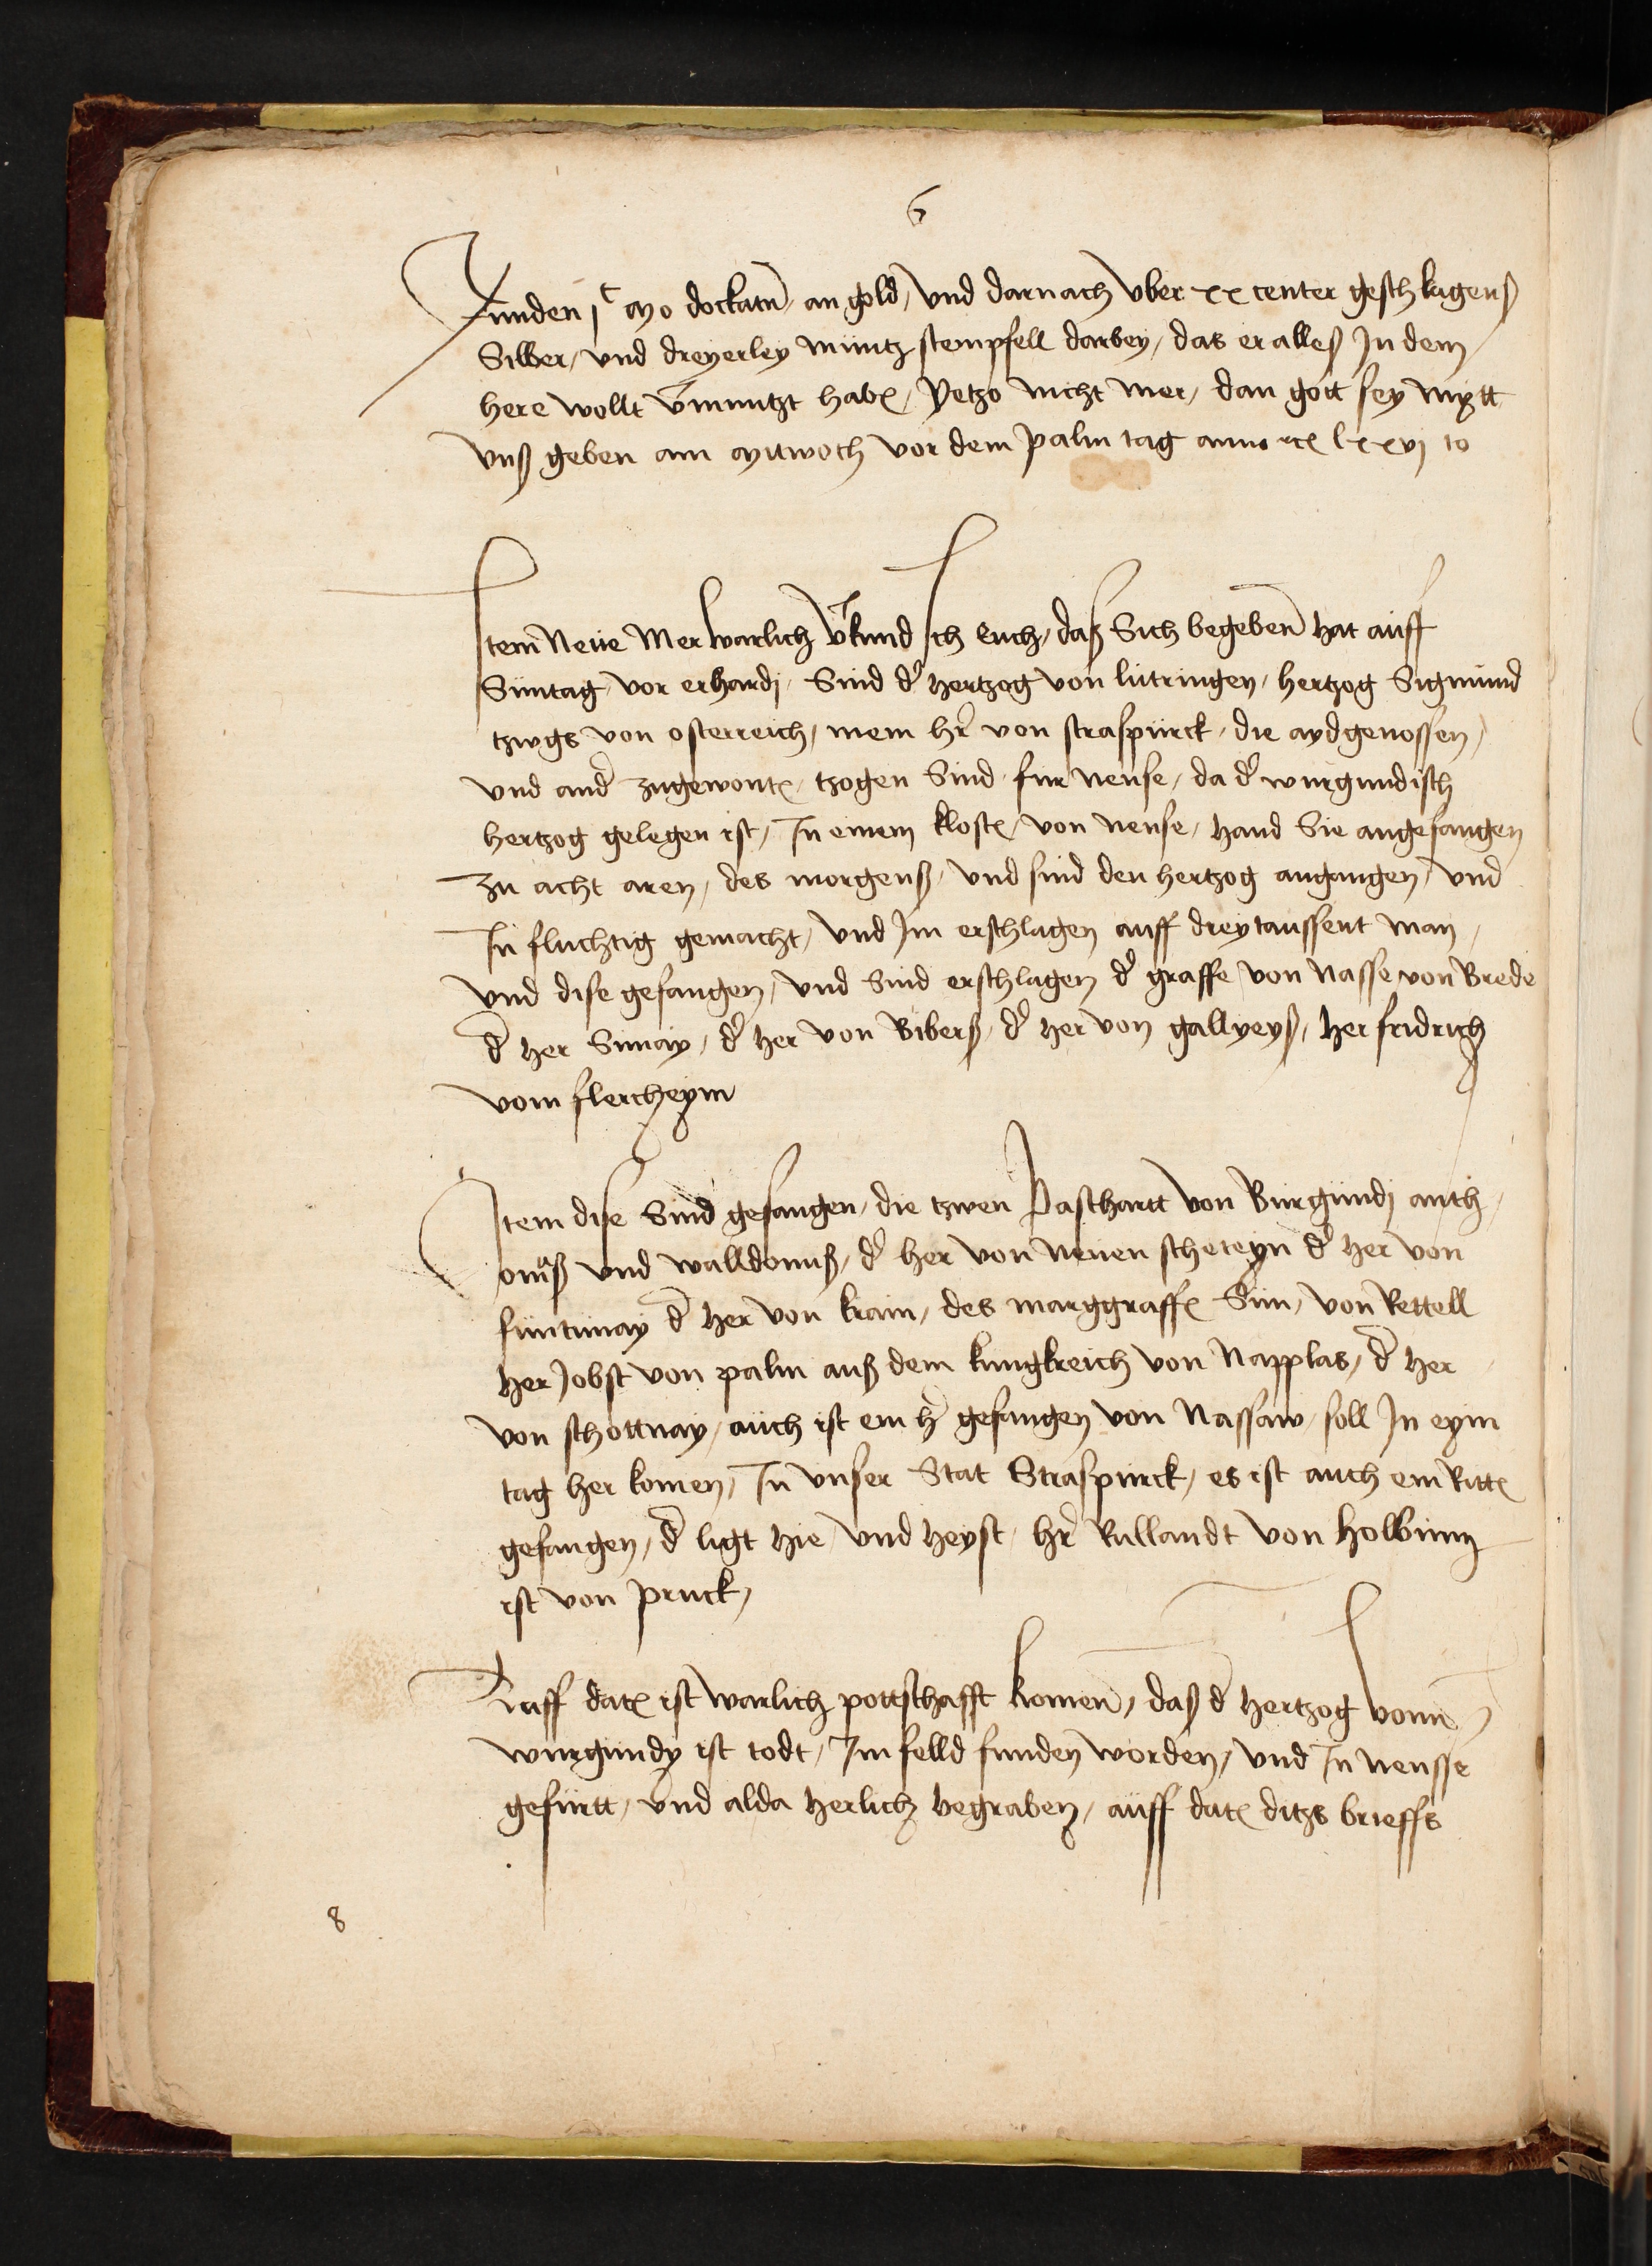 6
Funden jc Mo dockatn̄ an gold, vnd darnach vber xx center geschlagens
Silber, vnd dreyerley müntz stempfell darbey, das er alles Jn dem
here wollt v̄muntzt habn, Yetzo nicht mer, dan gott sey mytt
vnß geben am Mitwoch vor dem palm tag anno lxxvj to
Jtem Neüe Mer warlich v̄kund Jch euch, daß Sich begebenn hat aüff
Süntag vor erhardj, Sind d' hertzog von lütringen, hertzog Sigmünd
tzwgs von osterreich, mein hr̄ von straspürck, die aydgenossen,
vnd and' zugewontn, tzogen Sind für nense, da d' wurgundisch
hertzog gelegen ist, Jn einem klostn, von nense, hand Sie angefangen
zu acht aren, des morgenß, vnd sind den hertzog angangen, vnd
Jn fluchtig gemacht, vnd Jm erschlagen auff dreytaussent man,
vnd dise gefangen, vnd Sind erschlagen d' graffe von Nasse von Brede
d' her Simay, d' her von Biberß, d' her von gallyeyß, her fridrich
vom flercheym
Jtem dise Sind gefangen, die tzwen Paschartt von Bürgündj anth
oniß vnd walldoniß, d' her von neüen scheteyn d' her von
füntünay d' her von krain, des marggraffn Sün, von Rettell
her Jobst von palm auß dem kungkreich von Napplas, d' her
von schottnay, aüch ist ein h' gefangen von Nassaw, soll Jn eym
tag her komen, Jn vnser Stat Straspürck, es ist auch ein Rittn
gefangen, d' ligt hie vnd heyst hr̄ Rullandt von Holbinn
ist von pruck,
Auff datn ist warlich pottschafft komen̄, daß d' hertzog vonn
wurgundy ist todt, Jm felld funden worden, vnd Jn nensse
gefürtt, vnd alda herlich begraben, aüff datn ditzs brieffs
8